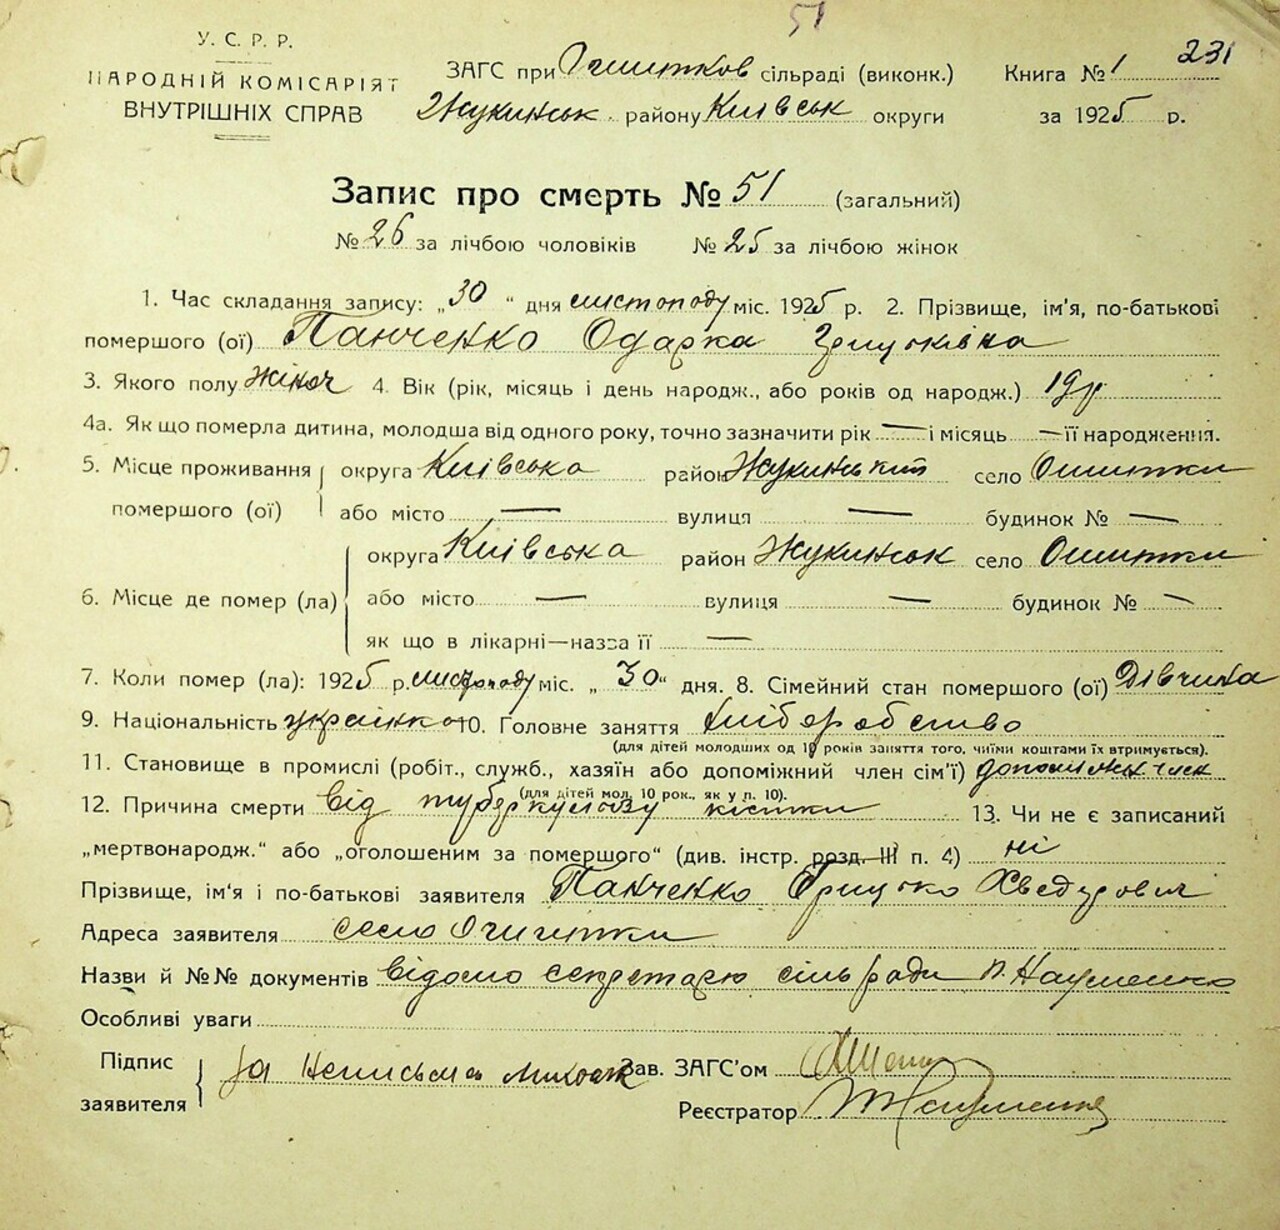 51
У. С. Р. Р.
НАРОДНІЙ КОМІСАРІЯТ
ВНУТРІШНІХ СПРАВ
ЗАГС при Ошитков сільраді (виконк.) Книга № 1 231
Жукинськ. району Київськ округи за 1925 р.
Запис про смерть № 51 (загальний)
№ 26 за лічбою чоловіків № 25 за лічбою жінок
1. Час складання запису: „30“ дня листопаду міс. 1925 р. 2. Прізвище, ім'я, по-батькові
помершого (ої) Панченко Одарка Грицьківна
3. Якого полу жіноч 4. Вік (рік, місяць і день народж., або років од народж.) 19 р
4а. Як що померла дитина, молодша від одного року, точно зазначити рік — і місяць — її народження.
5. Місце проживання помершого (ої) округа Київська район Жукинський село Ошитки
або місто — вулиця — будинок № —
6. Місце де помер (ла) округа Київська район Жукинськ село Ошитки
або місто — вулиця — будинок № —
як що в лікарні—назва її —
7. Коли помер (ла): 1925 р. листопаду міс. „30“ дня. 8. Сімейний стан помершого (ої) Дівчина
9. Національність українка 10. Головне заняття хліборобство
(для дітей молодших од 10 років заняття того, чиїми коштами їх втримується).
11. Становище в промислі (робіт., служб., хазяїн або допоміжний член сім'ї) допоміжн. член
(для дітей мол. 10 рок., як у п. 10).
12. Причина смерти від туберкульозу кістки 13. Чи не є записаний
„мертвонародж.“ або „оголошеним за помершого“ (див. інстр. розд. III п. 4) ні
Прізвище, ім'я і по-батькові заявителя Панченко Грицько Хведорович
Адреса заявителя село Ошитки
Назви й №№ документів Відомо секретарю сільради п. Науменко
Особливі уваги
Підпис заявителя За неписьмен. Зав. ЗАГС'ом
Реєстратор Науменко